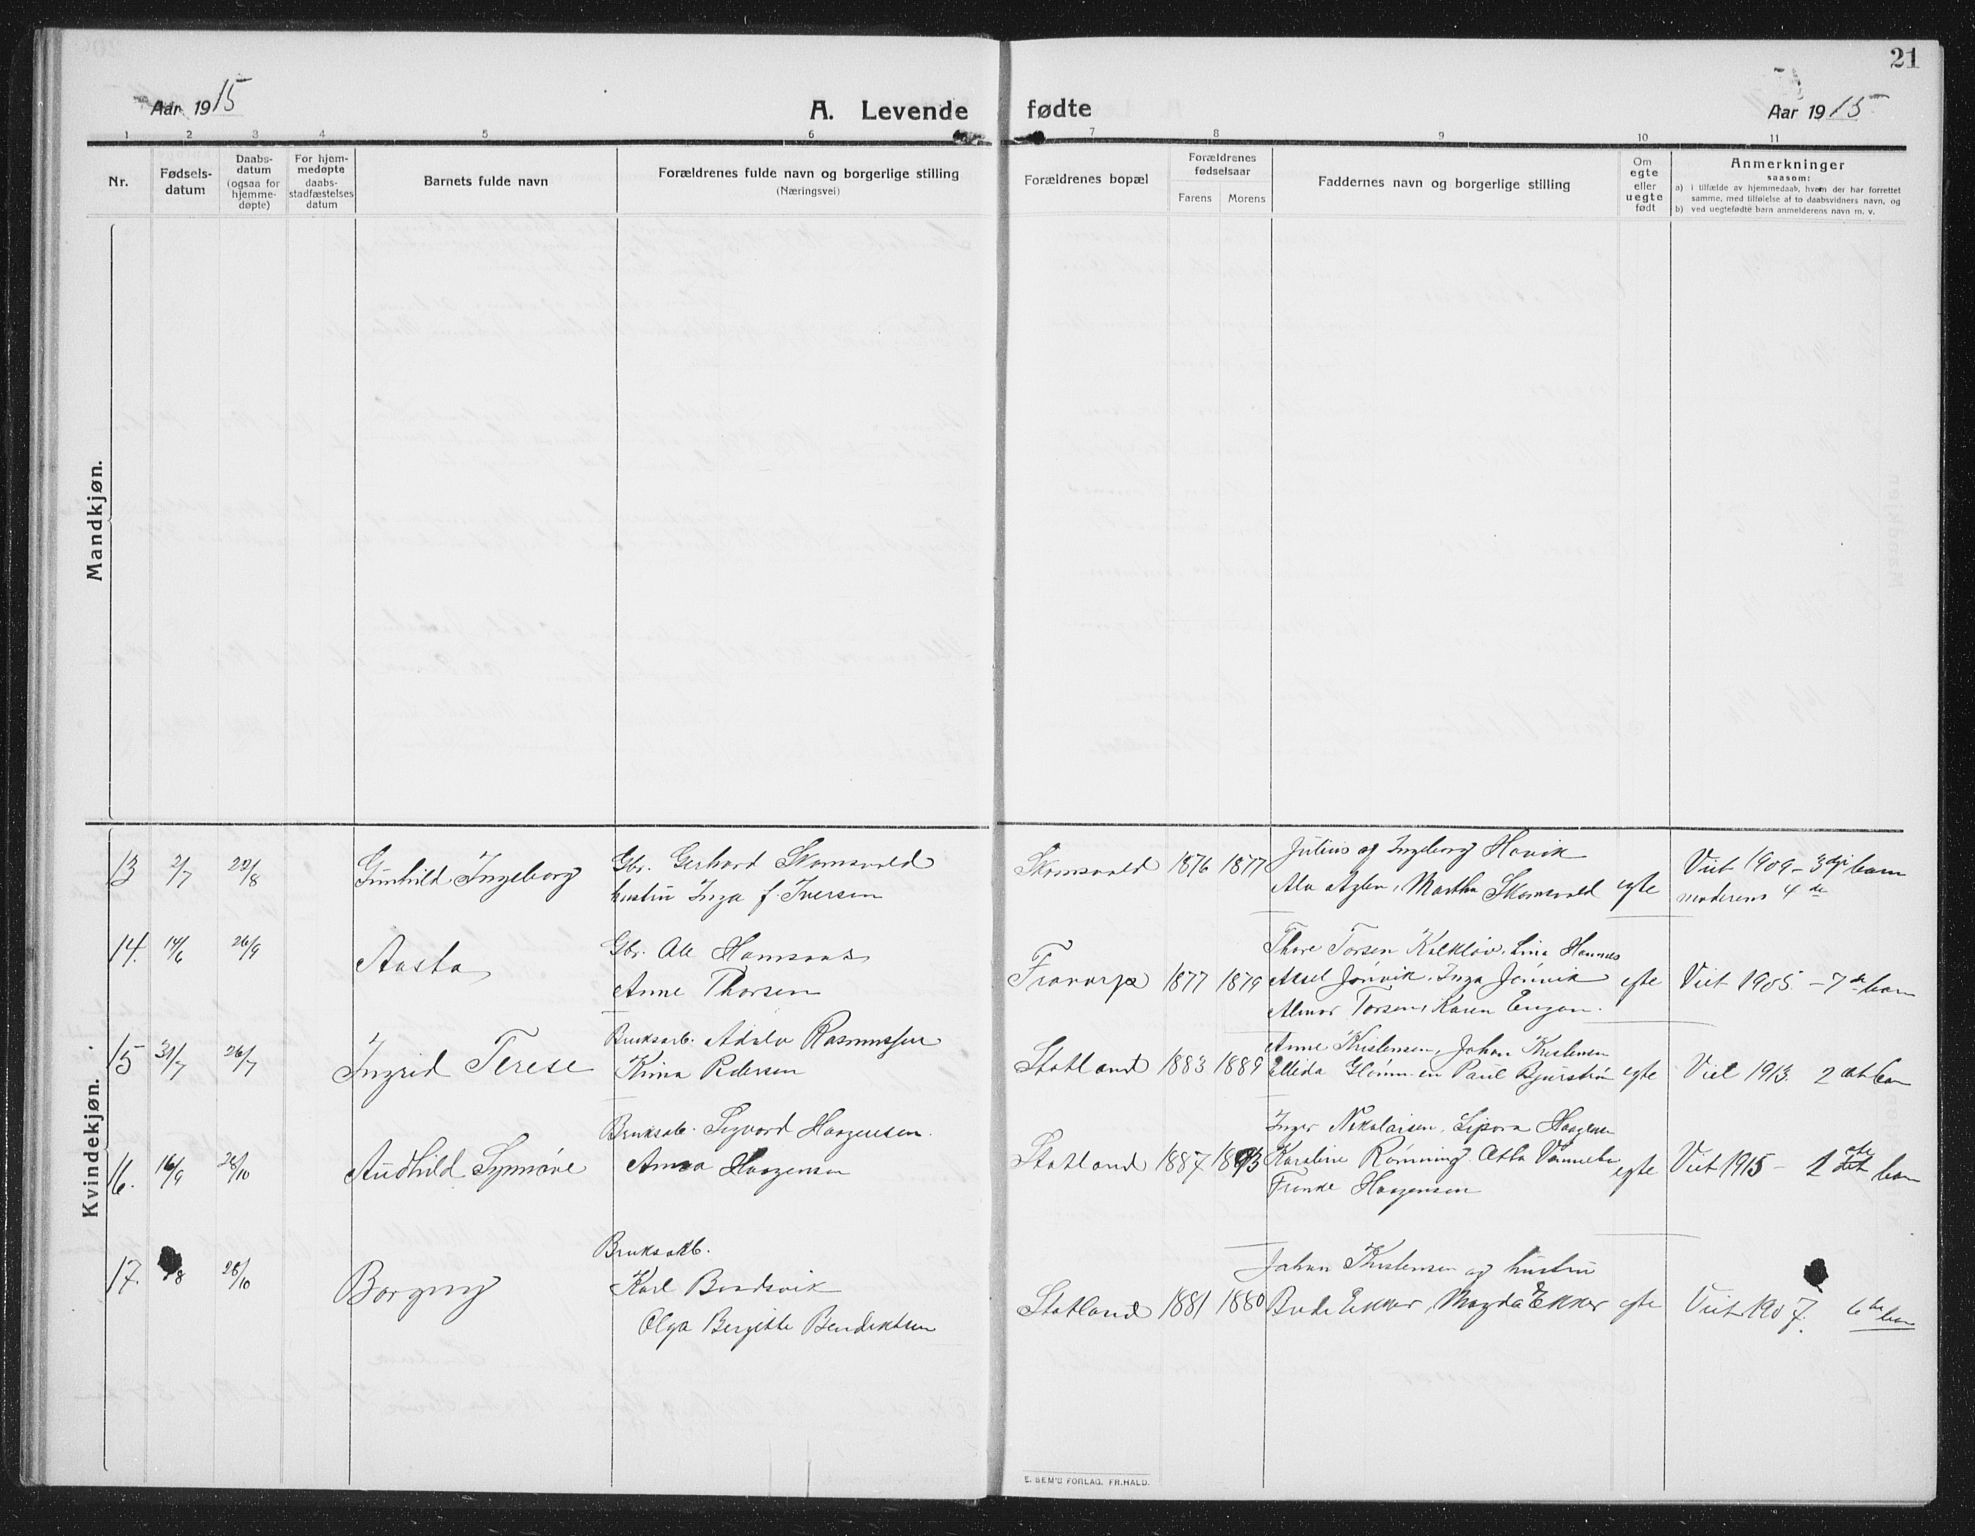 21
Aar 1915
A. Levende fødte
Aar 1915
1 2 3 4 5 6 7 8 9 10 11
Nr.
Fødsels-
datum
Daabs-
datum
(ogsaa for
hjemme-
døpte)
For hjem-
medøpte
daabs-
stadfæstelses
datum
Barnets fulde navn
Forældrenes fulde navn og borgerlige stilling
(Næringsvei)
Forældrenes bopæl
Forældrenes
fødselsaar
Farens Morens
Faddernes navn og borgerlige stilling
Om
egte
eller
uegte
født
Anmerkninger
saasom:
a) i tilfælde av hjemmedaab, hvem der har forrettet
samme, med tilføielse af to daabsvidners navn, og
b) ved uegtefødte barn anmelderens navn m. v.
Mandkjøn.
Kvindekjøn.
13 2/7 22/8 Gunhild Ingeborg
Gbr. Gerhard Skomsvold
hustru Inga f Iversen
Skomsvold 1876 1877
Julius og Ingeborg Hovik
Martha Skomsvold egte
Viet 1909 - 3dje barn
moderens 4de
14. 14/6 26/9 Aasta
Gbr. Ole
Anne Thorsen
1877 1879
Thore Torsen
Aksel Jønvik, Inga Jønvik egte
Torsen, Karen
Viet 1905. - 7de barn
15 26/7 Ingrid Terese
Bruksarb. Rasmussen
Pedersen
Statland 1883 1889
Anne Kristensen, Johan Kristensen
Paul egte
Viet 1913. 2det barn
16. 16/9 28/10 Audhild Synnøve
Bruksarb. Sigvard Haagensen.
Anna Haagensen
Statland 1887 1893
Inger Nikolaisen, Haagensen
Karoline Rømning. egte
Haagensen
Viet 1915 - 1ste barn
17. 28/10 Borgny
Bruksarb.
Karl
Olga Bergitte Bendiktsen
Statland 1881 1880
Johan Kristensen og hustru
Ekker, Magda Ekker egte
Viet 1907. 6te barn
E. SEM'S FORLAG, FR.HALD.